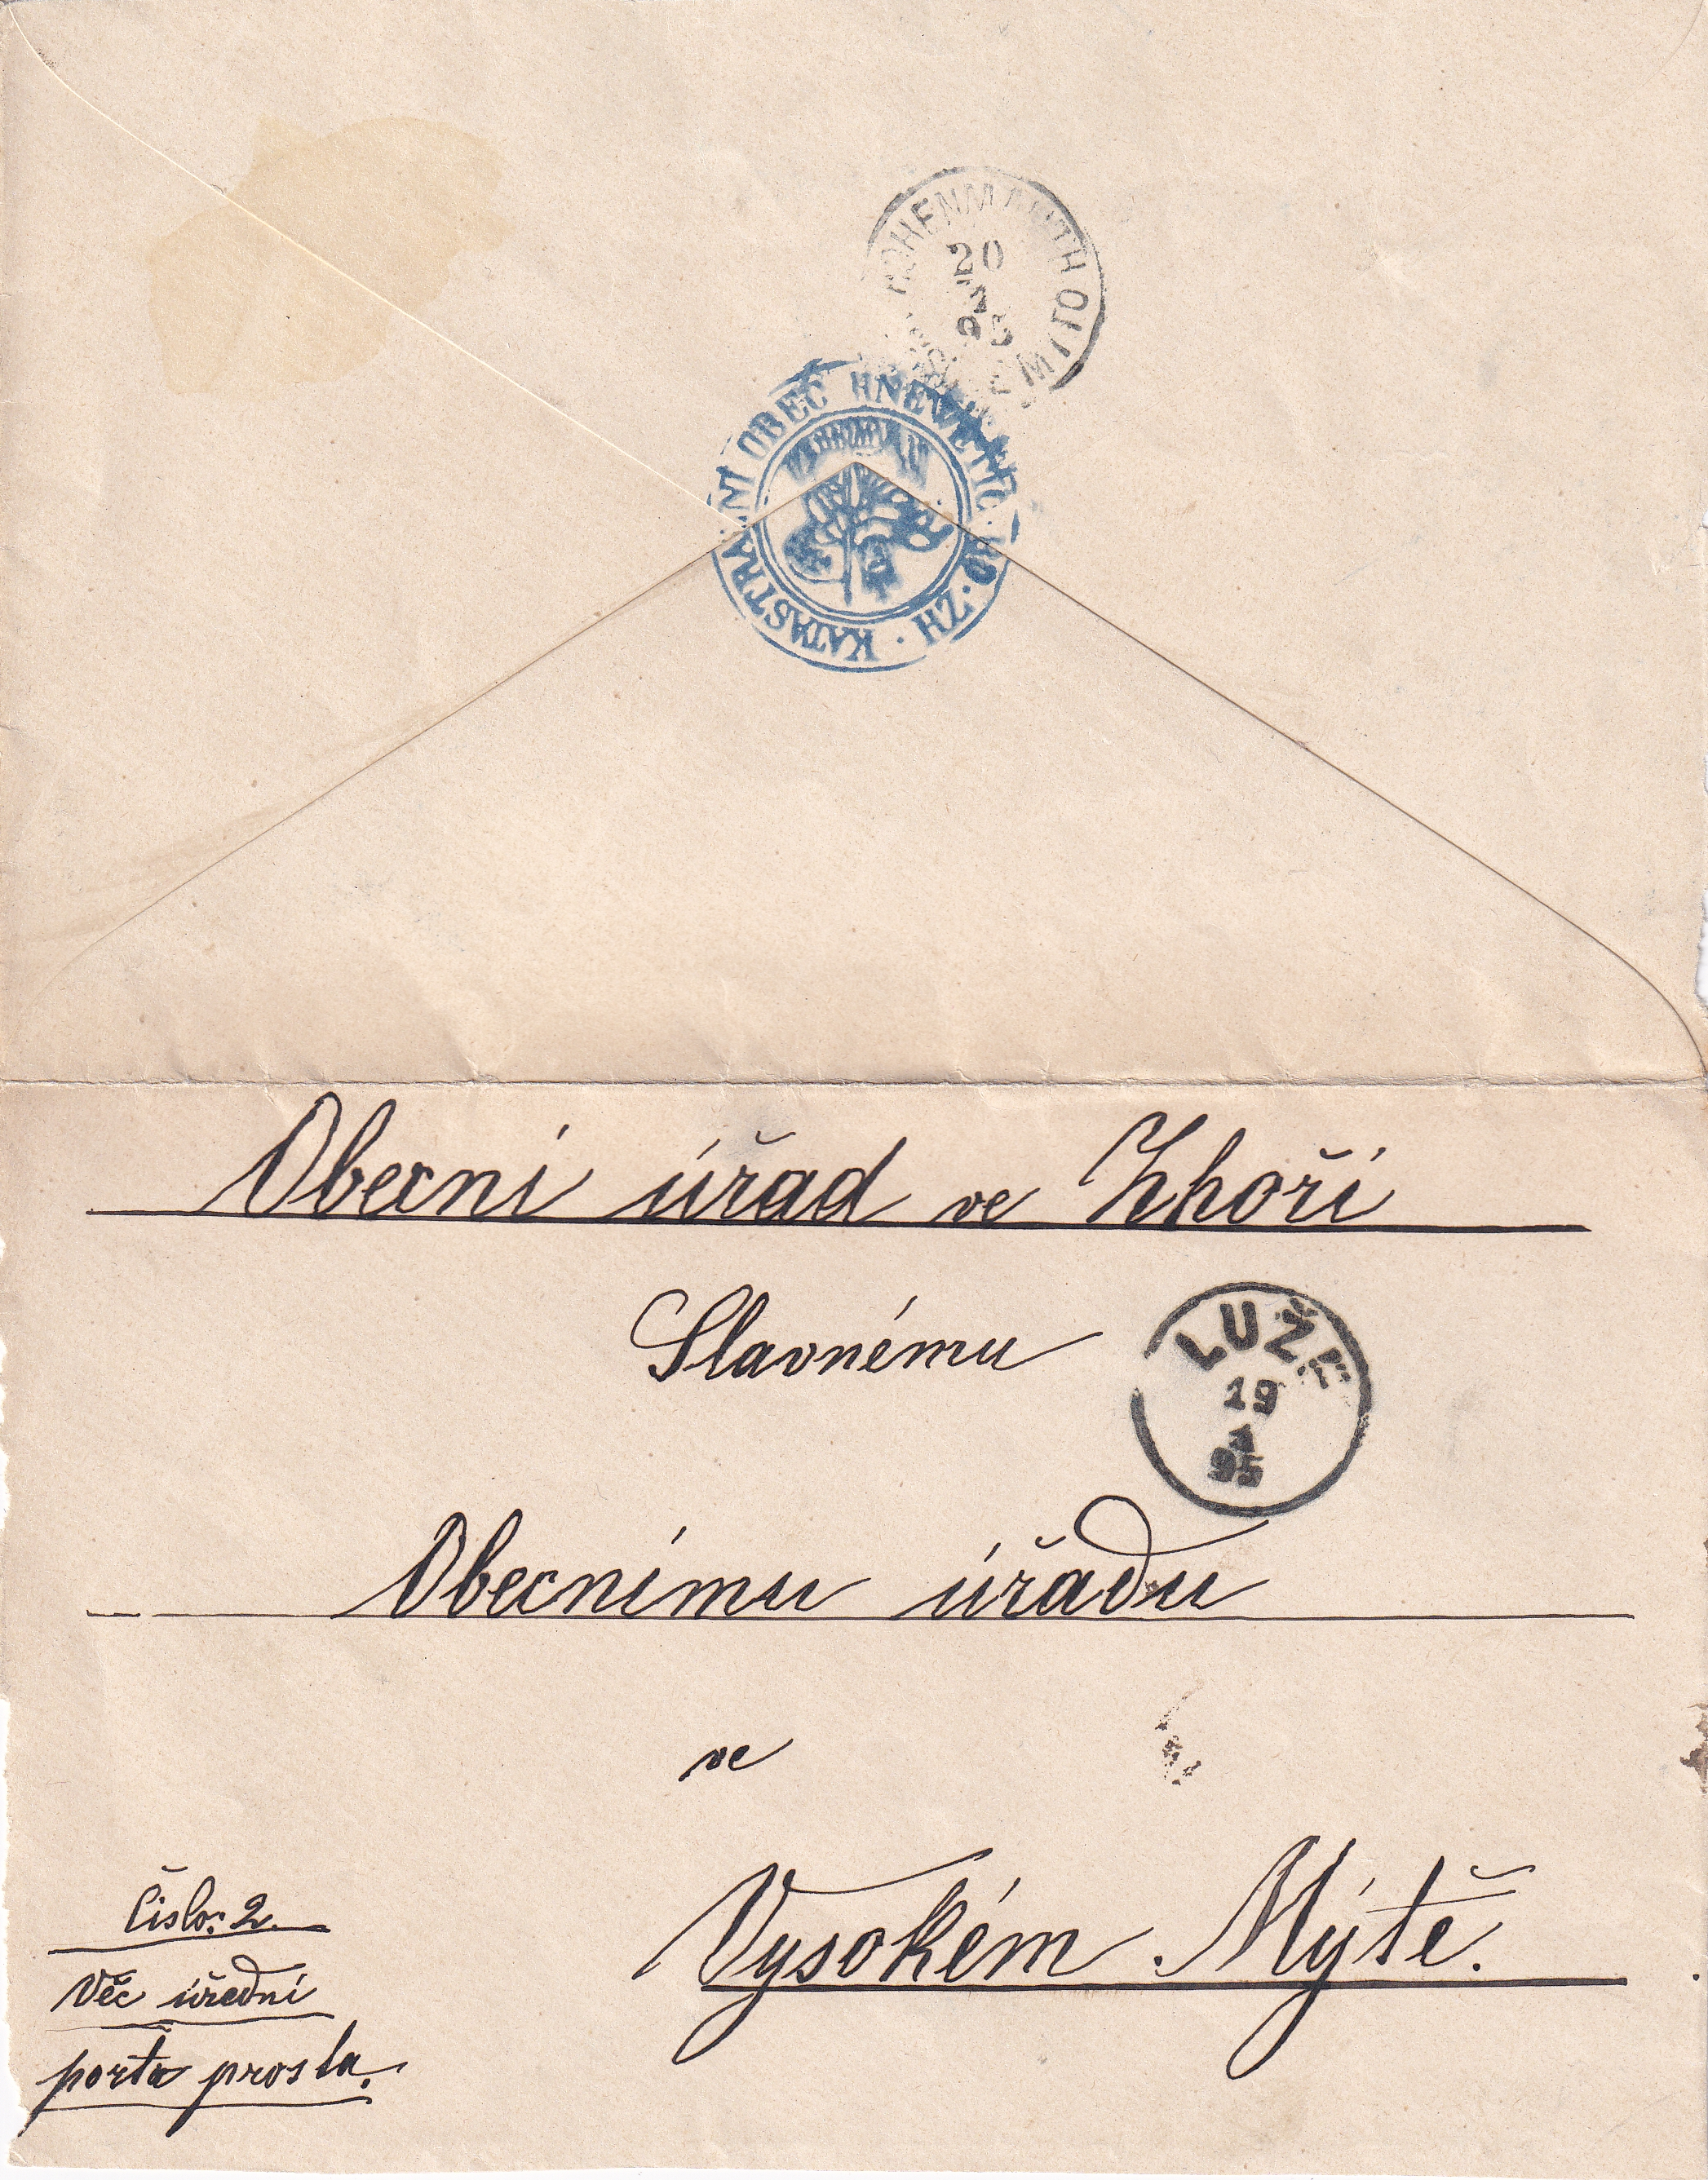 HOHENMAUTH
20
95
KATASTRALNÍ OBEC HNEWETIC · ZH ·
Obecní úřad ve Zhoři
Slavnému
LUŽE
19
1
95
Obecnímu úřadu
ve
Vysokém Mýtě.
Číslo: 2.
Věc úřední
porta prosta.